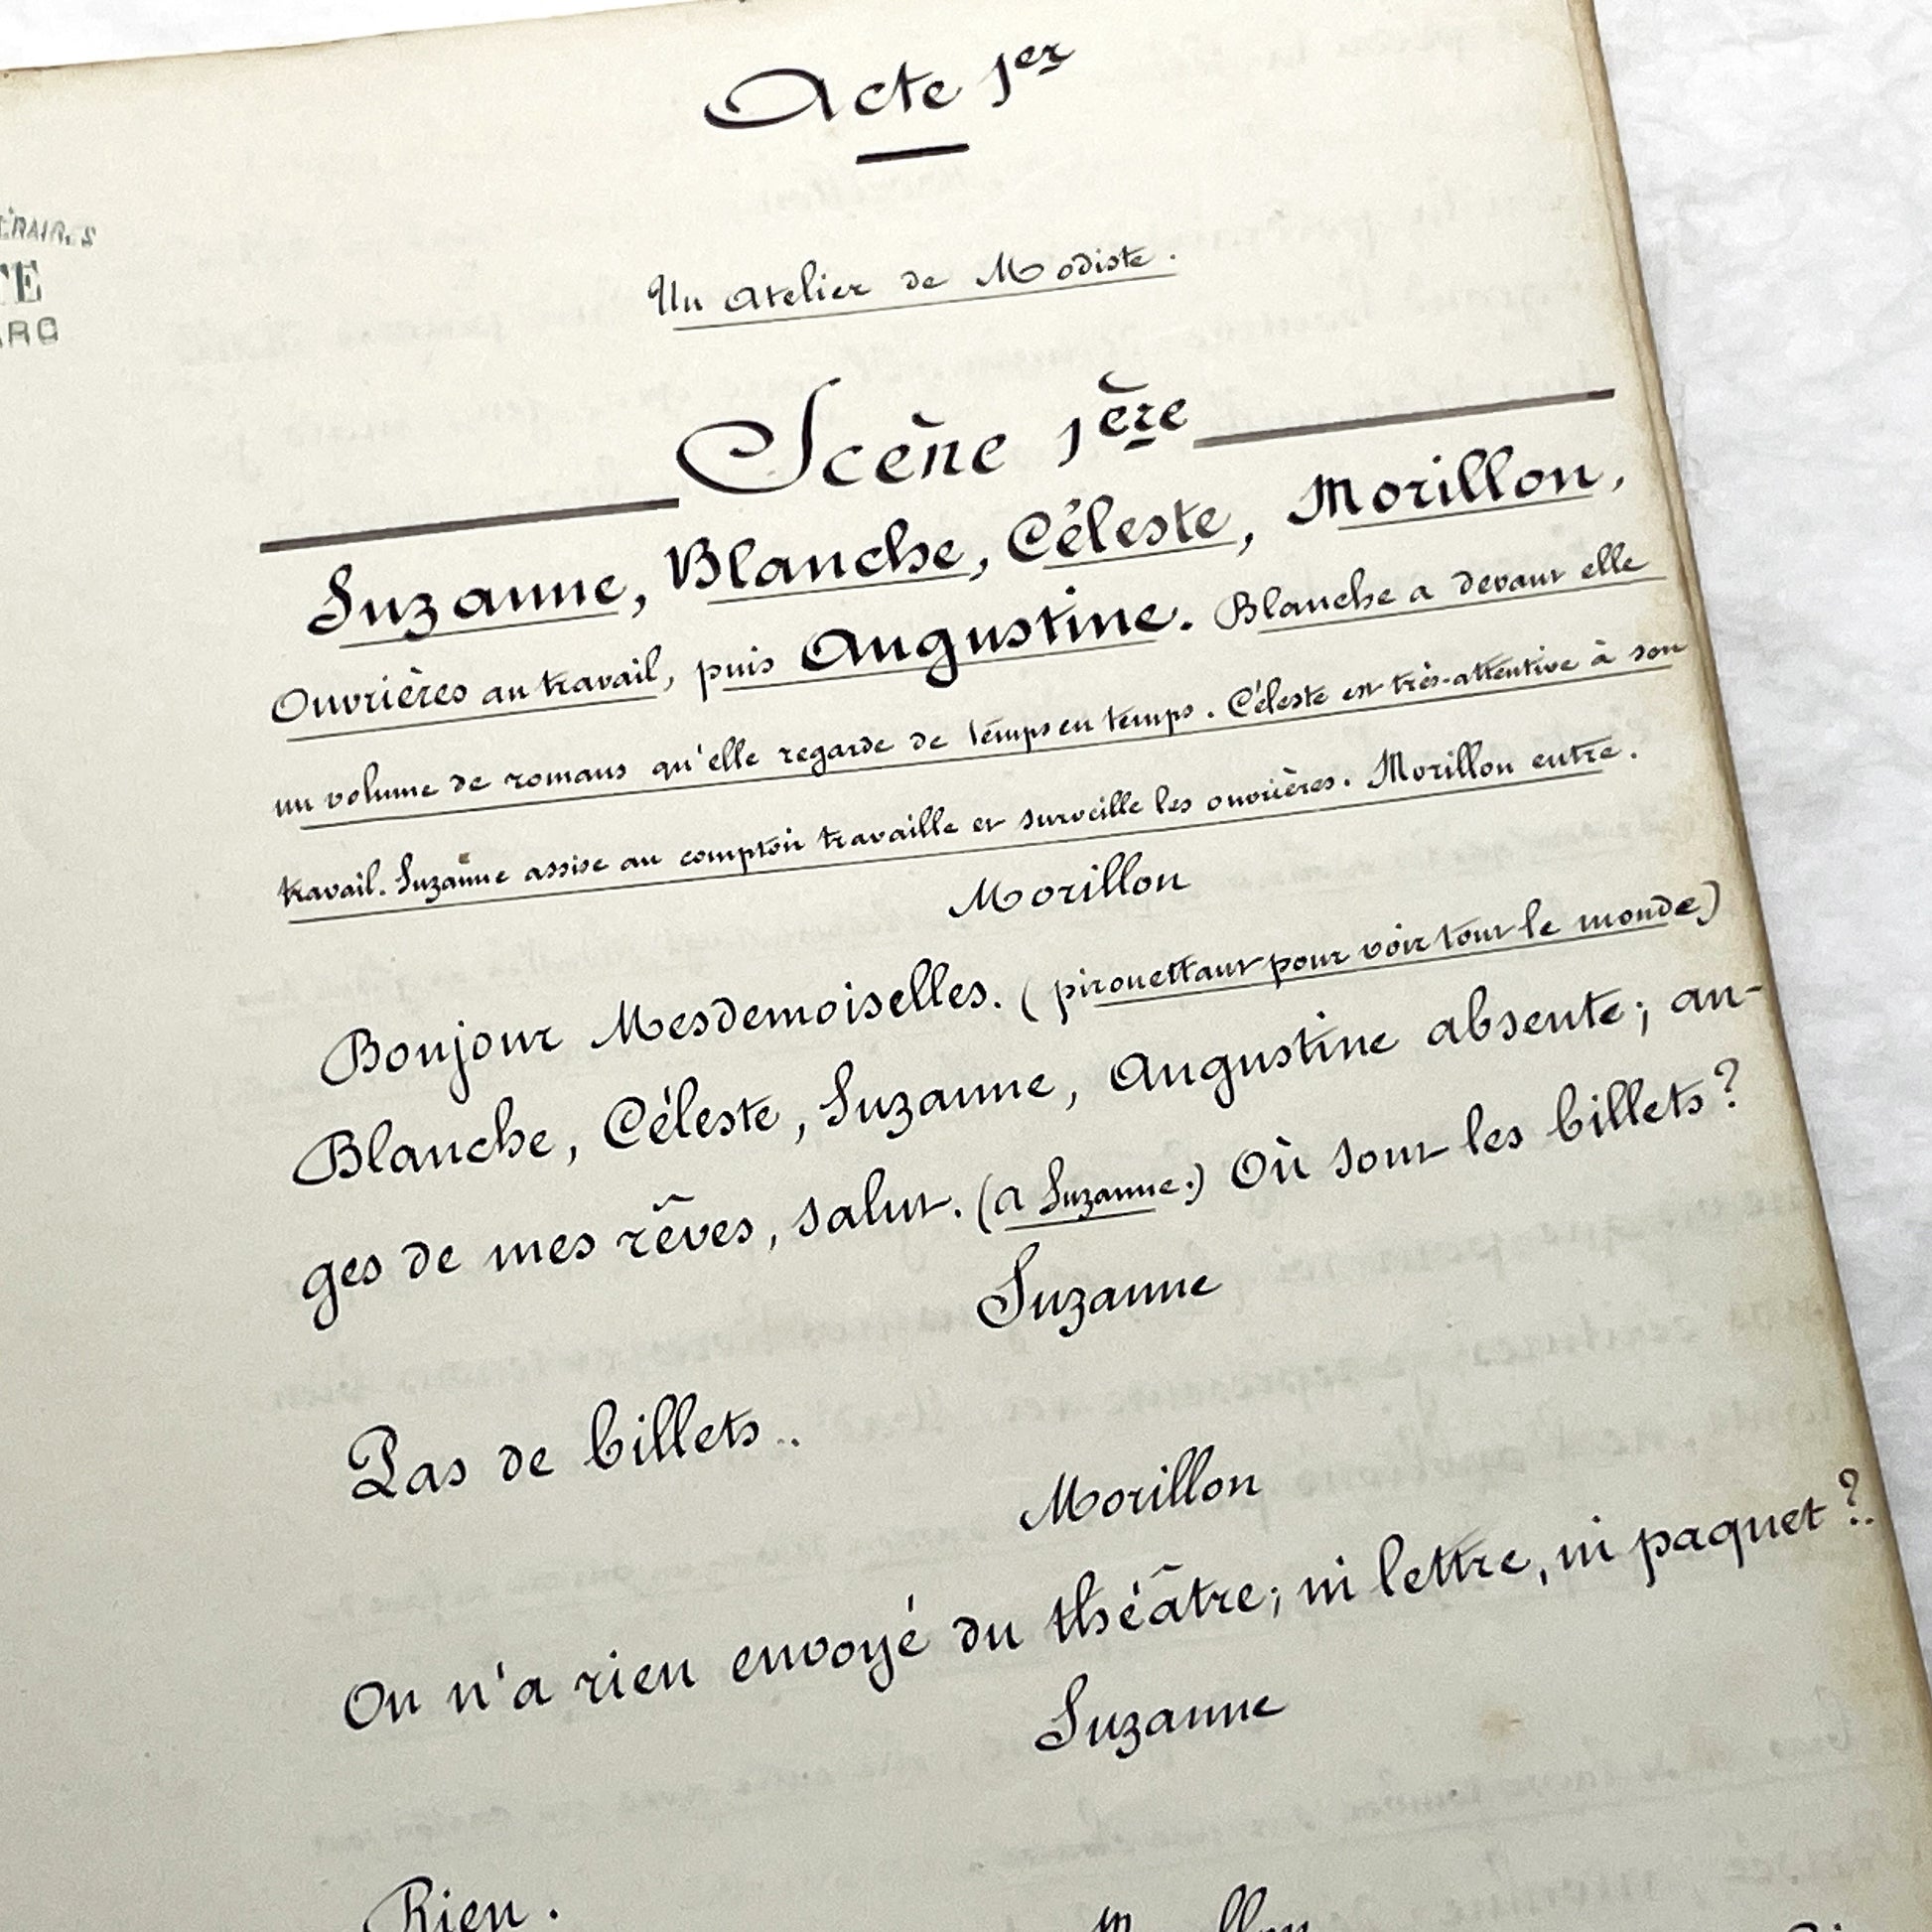 Acte 1er
Un Atelier de Modiste.
Scène 1ère
Suzanne, Blanche, Céleste, Morillon,
Ouvrières au travail, puis Augustine. Blanche a devant elle
un volume de romans qu'elle regarde de temps en temps. Céleste est très-attentive à son
travail. Suzanne assise au comptoir travaille et surveille les ouvrières. Morillon entre.
Morillon
Bonjour Mesdemoiselles. (pirouettant pour voir tout le monde)
Blanche, Céleste, Suzanne, Augustine absente; an-
ges de mes rêves, salut. (a Suzanne.) Où sont les billets?
Suzanne
Pas de billets..
Morillon
On n'a rien envoyé du théâtre; ni lettre, ni paquet?..
Suzanne
Rien.
Morillon